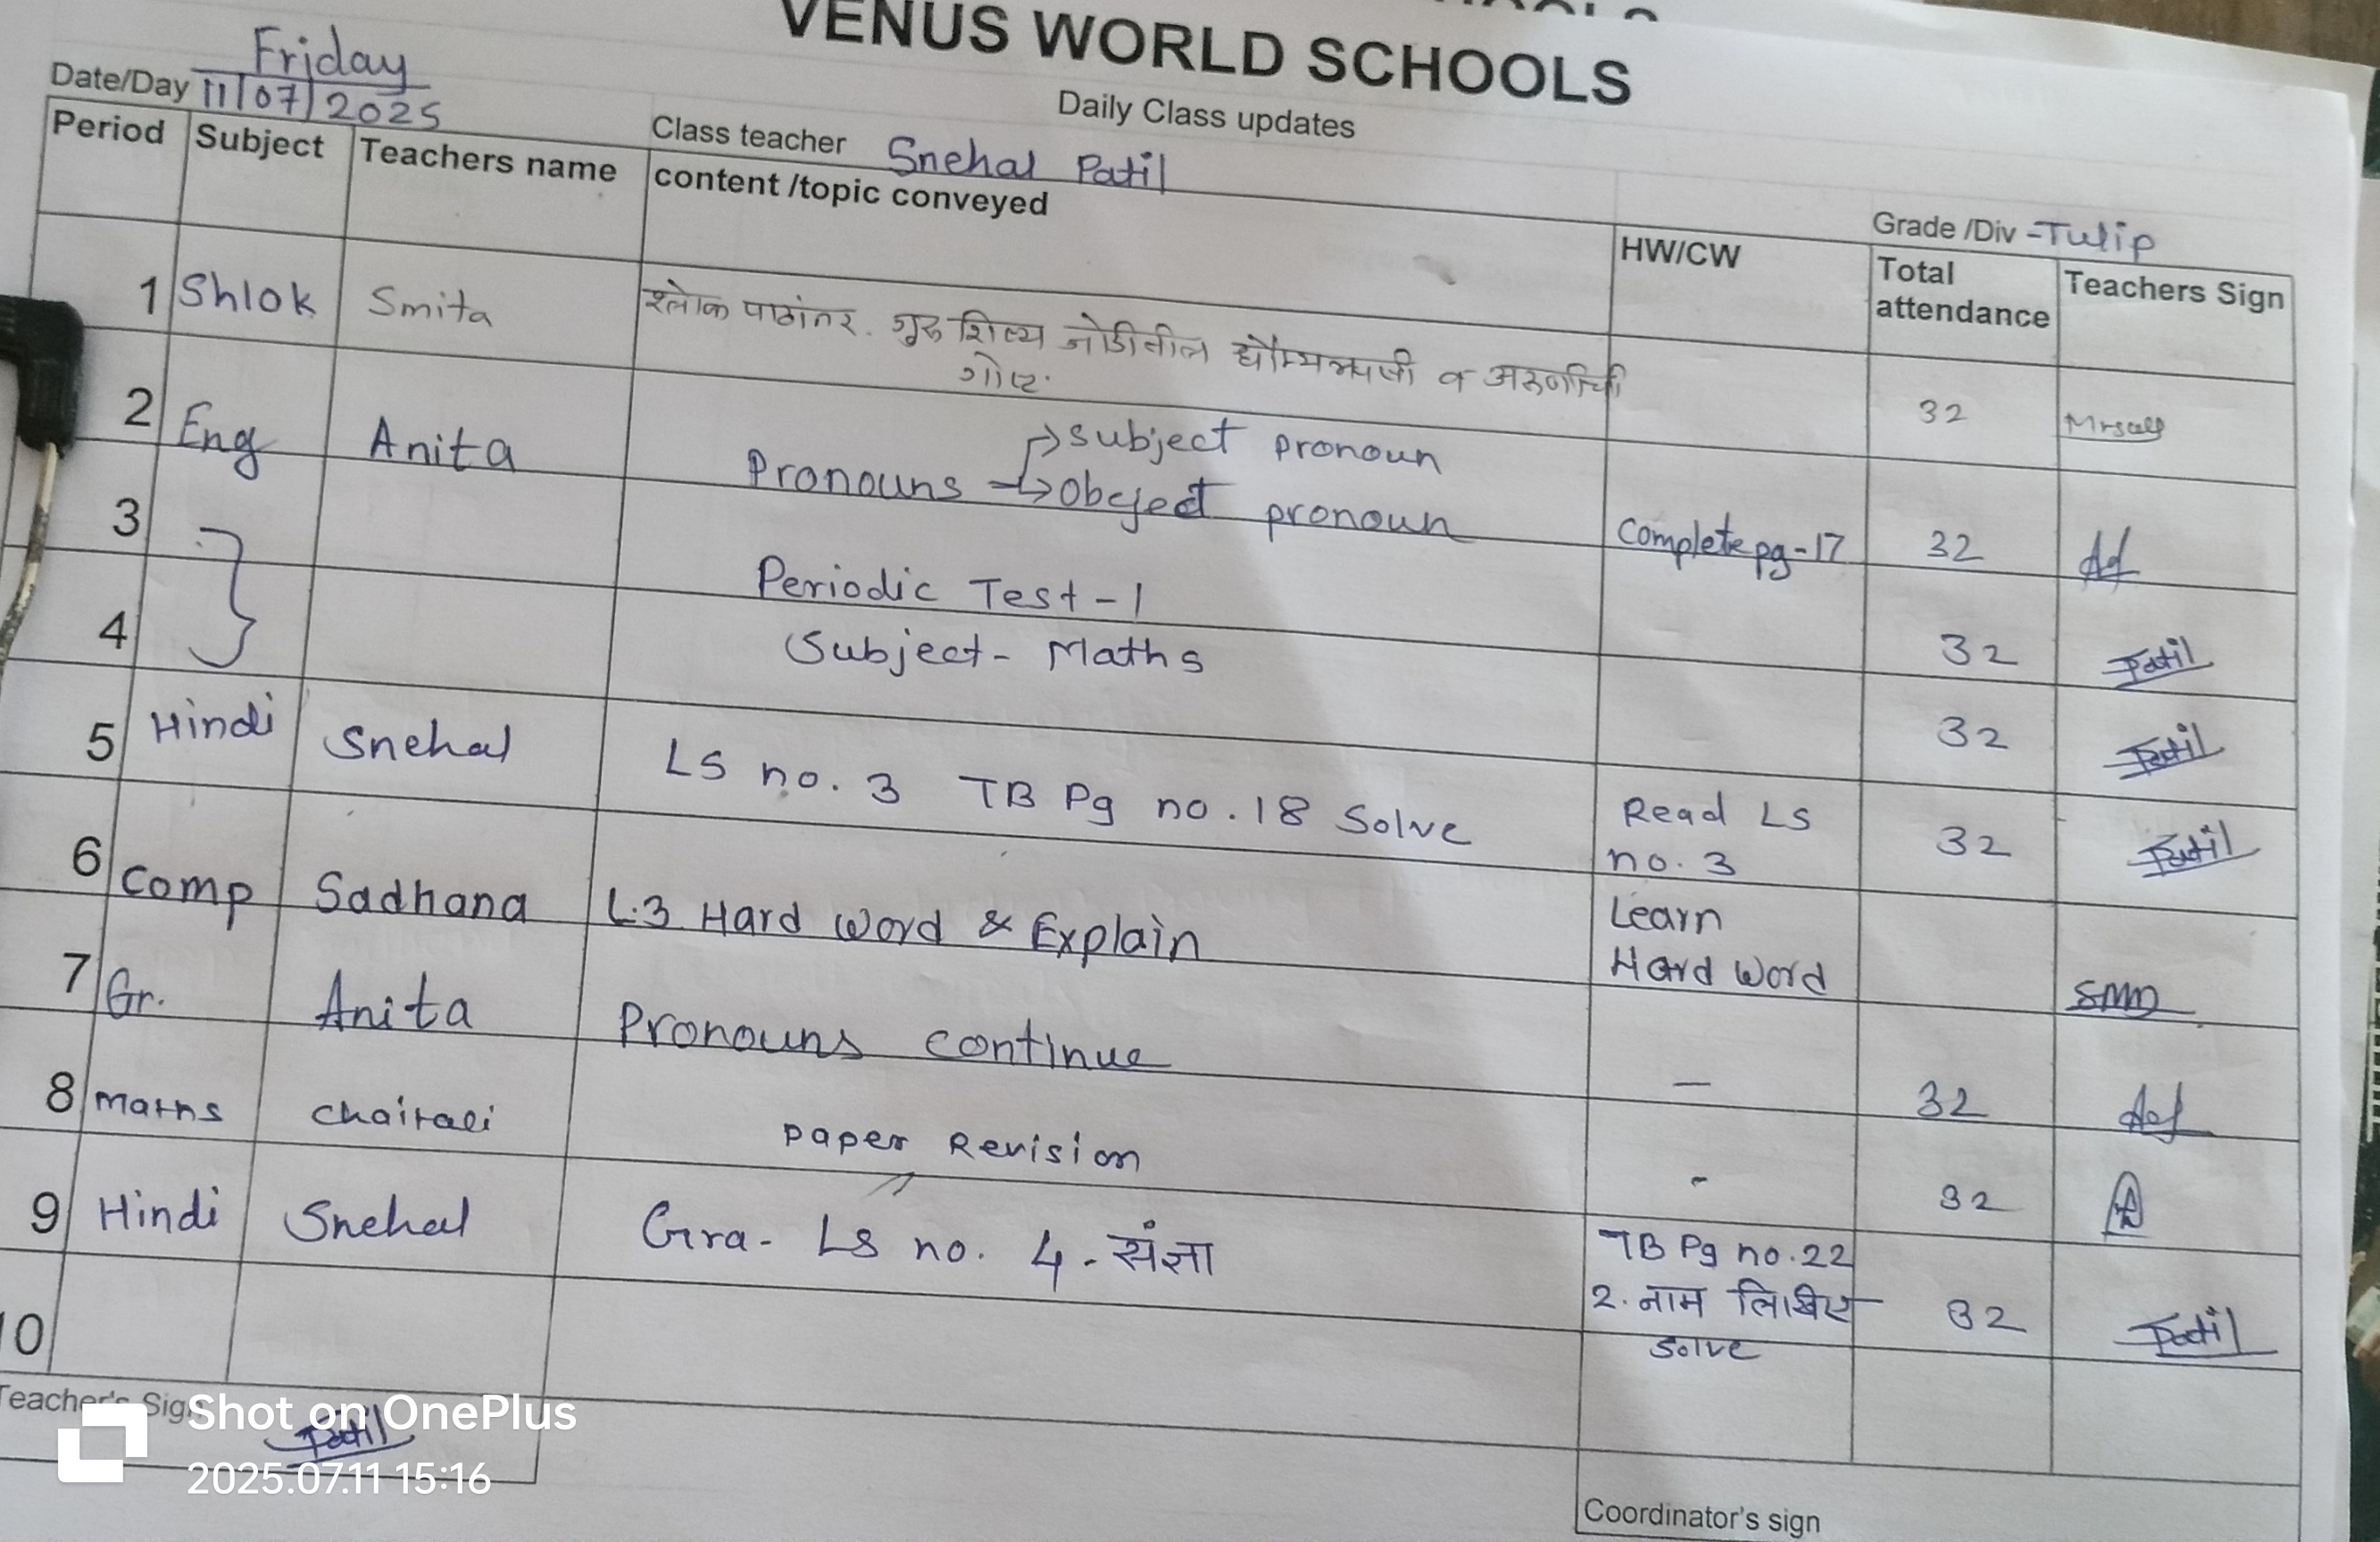 VENUS WORLD SCHOOLS
Daily Class updates
Friday
Date/Day 11/07/2025
Class teacher Snehal Patil
Grade /Div -Tulip
Period Subject Teachers name content /topic conveyed HW/CW Total attendance Teachers Sign
1 Shlok Smita श्लोक पाठांतर. गुरु शिष्य जोडीतील व 32
गोष्ट.
2 Eng Anita Pronouns →subject pronoun
→Obejed pronoun Complete pg-17 32
3 Periodic Test-1 32 Patil
4 Subject- Maths 32 Patil
5 Hindi Snehal LS no. 3 TB Pg no.18 Solve Read LS no. 3 32 Patil
6 Comp Sadhana L.3 Hard Word & Explain Learn Hard Word
7 Gr. Anita Pronouns continue — 32
8 maths chaitali paper Revision - 32
9 Hindi Snehal Gra- LS no. 4-संज्ञा TB Pg no.22 32 Patil
2. नाम लिखिए
solve
10
Teacher's Sign
Patil
Coordinator's sign
Shot on OnePlus
2025.07.11 15:16